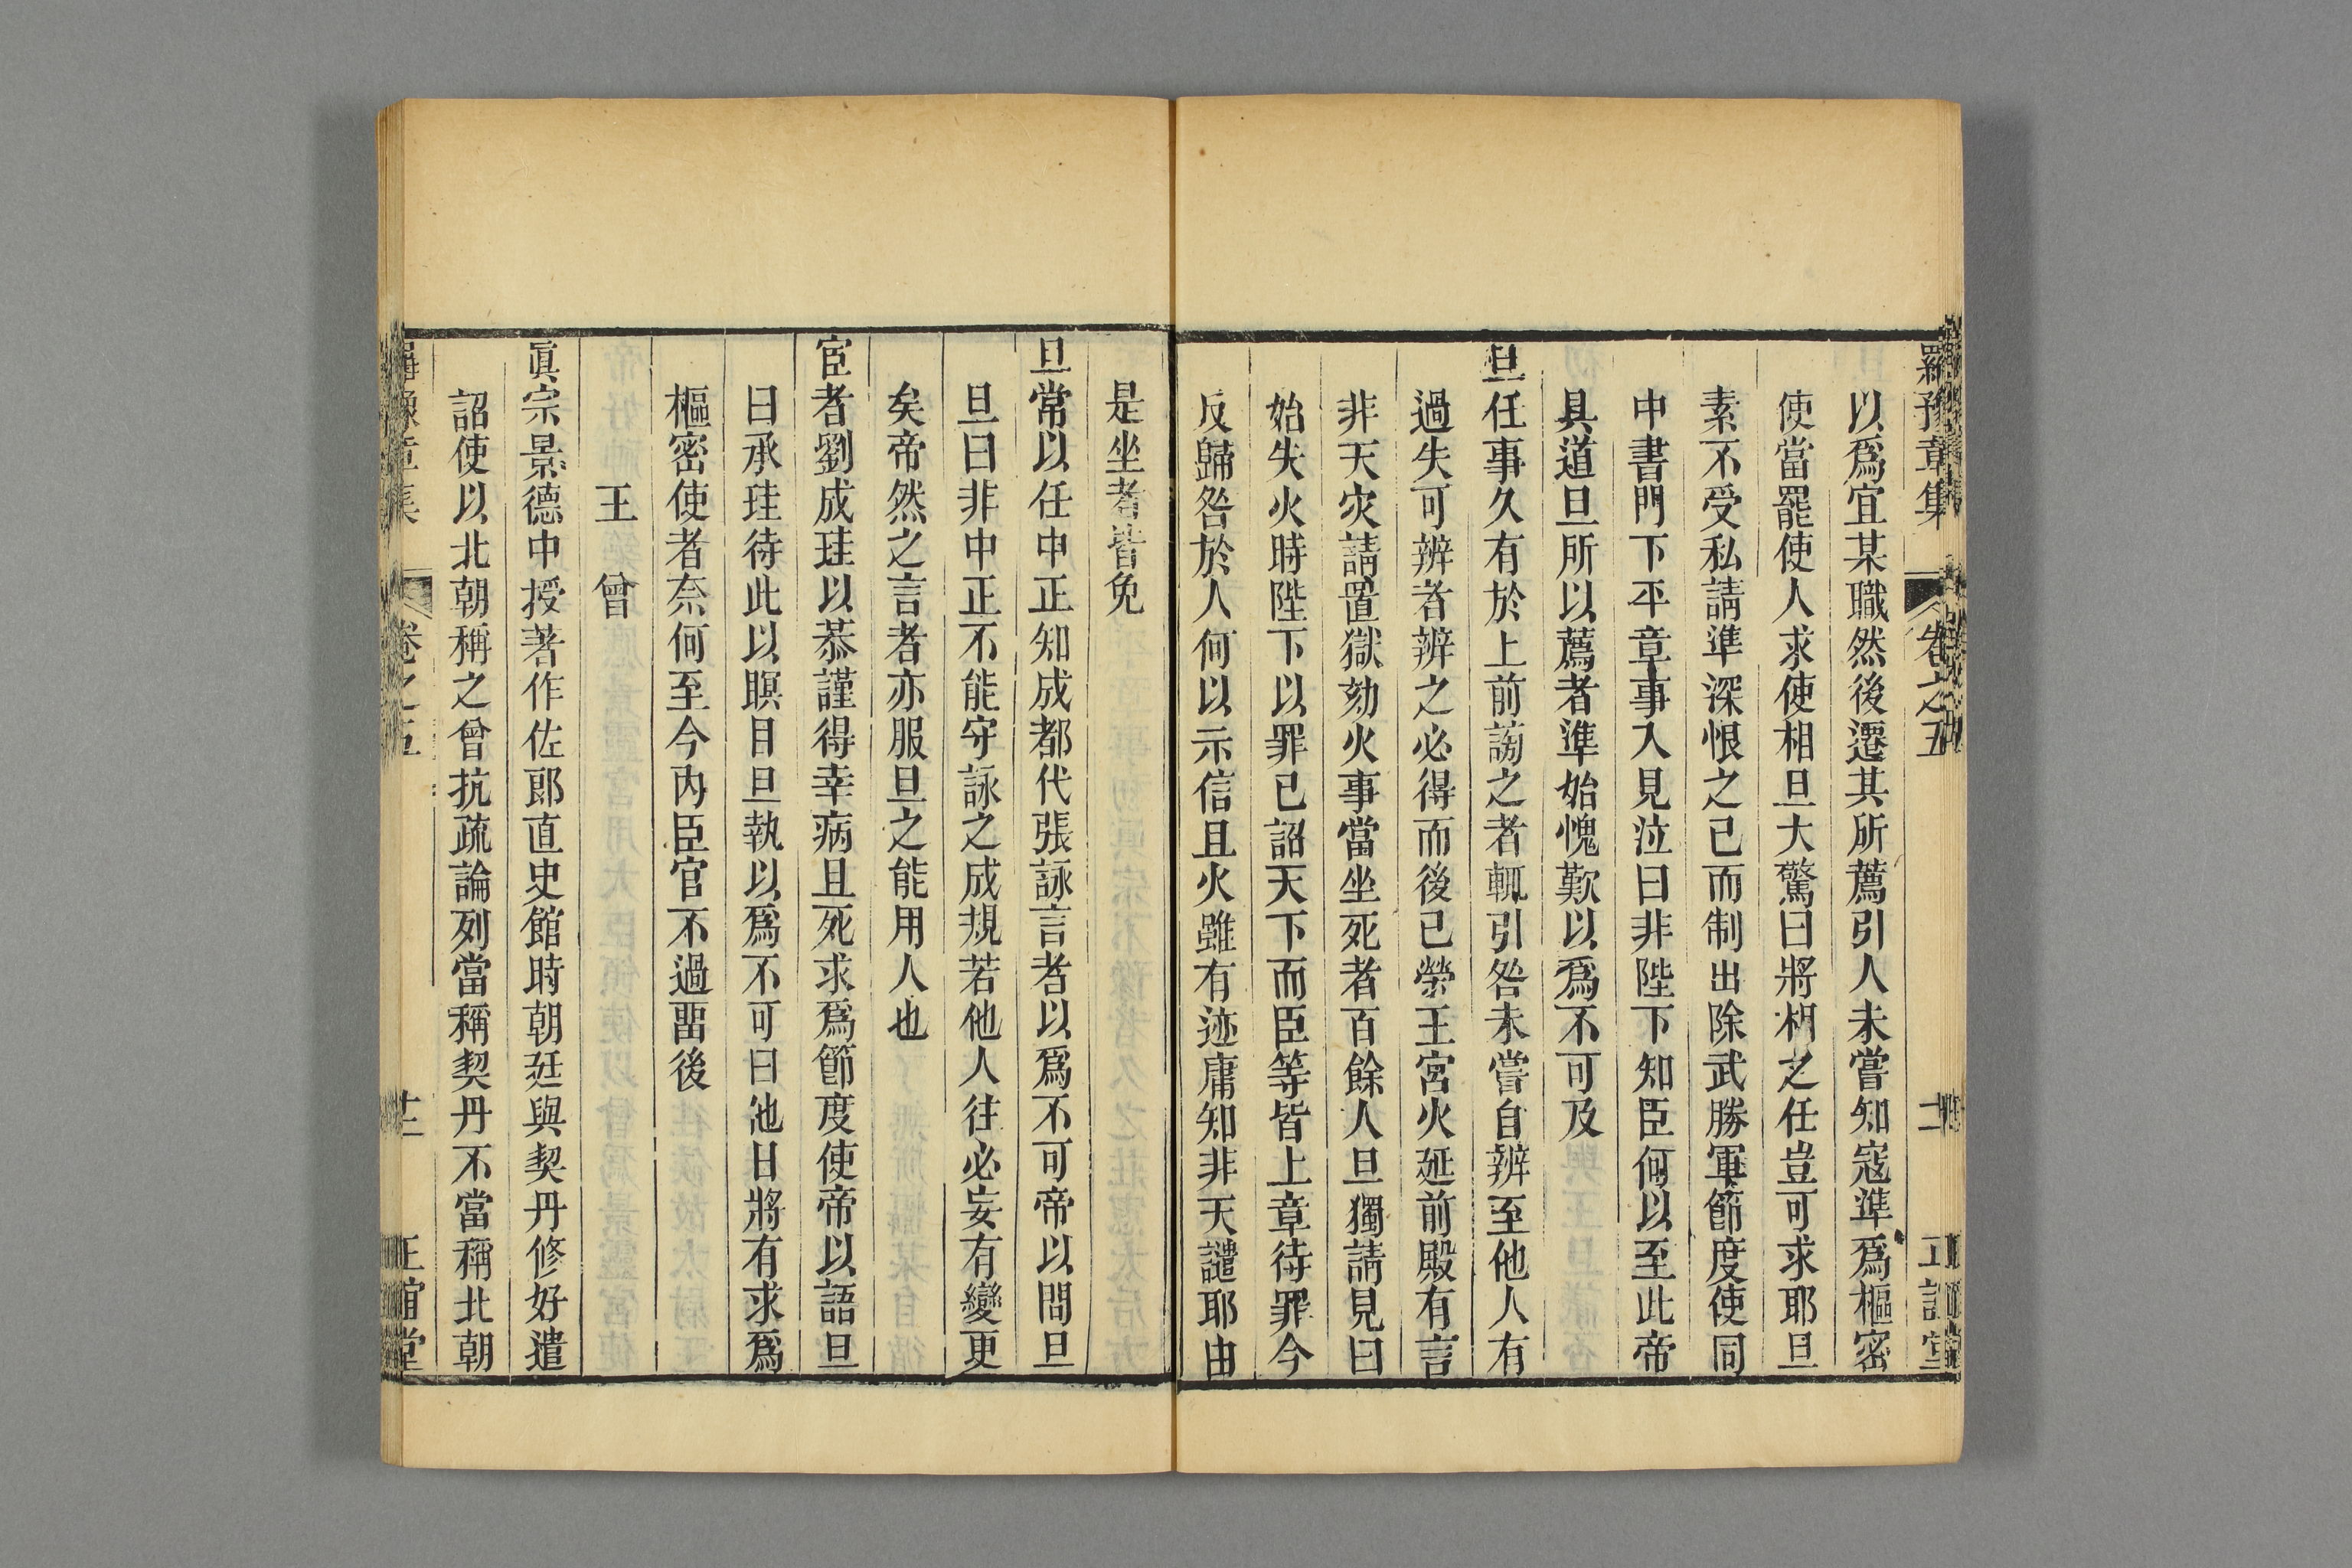 羅豫章集 卷之五 二 正誼堂
以爲宜某職然後遷其所薦引人未嘗知寇準爲樞密
使當罷使人求使相旦大驚曰將相之任豈可求耶旦
素不受私請準深恨之已而制出除武勝軍節度使同
中書門下平章事入見泣曰非陛下知臣何以至此帝
具道旦所以薦者準始愧歎以爲不可及
旦任事久有於上前謗之者輒引咎未嘗自辨至他人有
過失可辨者辨之必得而後已榮王宮火延前殿有言
非天灾請置獄劾火事當坐死者百餘人旦獨請見曰
始失火時陛下以罪已詔天下而臣等皆上章待罪今
反歸咎於人何以示信且火雖有迹庸知非天譴耶由
是坐者皆免
旦常以任中正知成都代張詠言者以爲不可帝以問旦
旦曰非中正不能守詠之成規若他人往必妄有變更
矣帝然之言者亦服旦之能用人也
宦者劉成珪以恭謹得幸病且死求爲節度使帝以語旦
曰承珪待此以瞑目旦執以爲不可曰池日將有求爲
樞密使者奈何至今內臣官不過畱後
王曾
眞宗景德中授著作佐郎直史館時朝廷與契丹修好遣
詔使以北朝稱之曾抗疏論列當稱契丹不當稱北朝
卷之五 正誼堂